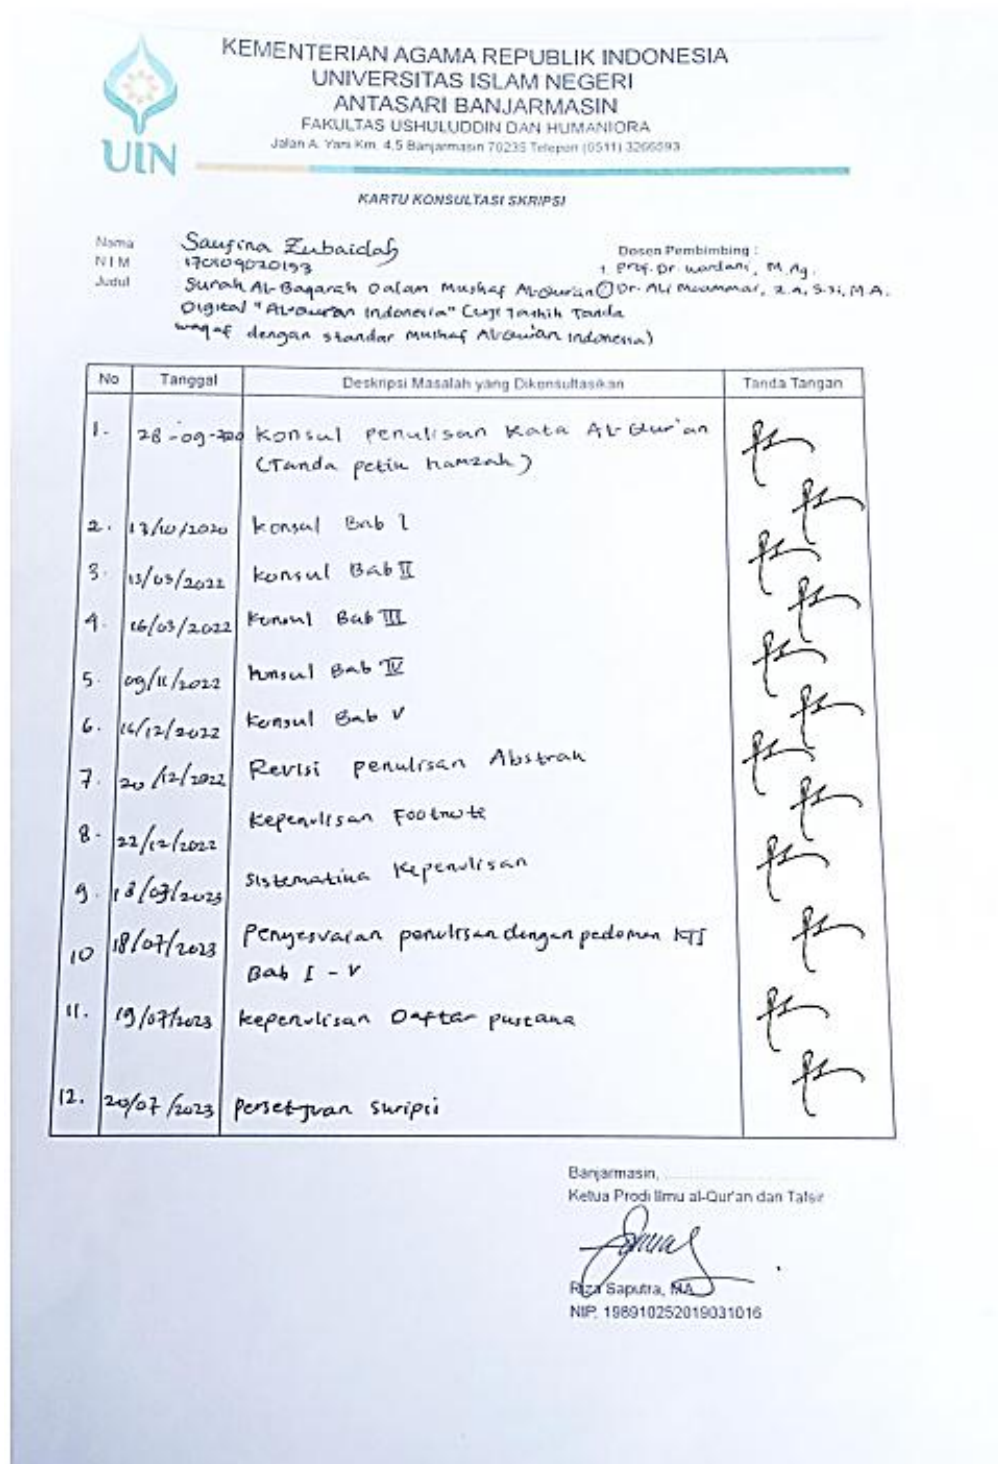 KEMENTERIAN AGAMA REPUBLIK INDONESIA
UNIVERSITAS ISLAM NEGERI
ANTASARI BANJARMASIN
FAKULTAS USHULUDDIN DAN HUMANIORA
Jalan A. Yani Km. 4,5 Banjarmasin 70235 Telepon (0511) 3266593
UIN
KARTU KONSULTASI SKRIPSI
Nama Saufina Zubaidah
NIM 170109020193
Judul Surah Al-Baqarah Dalam Mushaf Al-Quran
Digital "Al-Quran Indonesia" (Uji Tashih Tanda
waqaf dengan standar mushaf Al-Quran Indonesia)
Dosen Pembimbing :
1. Prof. Dr. Wardani, M.Ag.
2 Dr. Ali Muammar, Z.A, S.Si, M.A.
No Tanggal Deskripsi Masalah yang Dikonsultasikan Tanda Tangan
1. 28-09-2020 Konsul Penulisan Kata Al-Qur'an
(Tanda petik hamzah)
2. 13/10/2020 Konsul Bab I
3. 13/03/2022 Konsul Bab II
4. 16/03/2022 Konsul Bab III
5. 09/11/2022 Konsul Bab IV
6. 14/12/2022 Konsul Bab V
7. 20/12/2022 Revisi penulisan Abstrak
8. 22/12/2022 Kepenulisan Footnote
9. 13/07/2023 Sistematika Kepenulisan
10 18/07/2023 Penyesuaian penulisan dengan pedoman KTI
Bab I - V
11. 19/07/2023 Kepenulisan Daftar pustaka
12. 20/07/2023 Persetujuan skripsi
Banjarmasin,
Ketua Prodi Ilmu al-Qur'an dan Tafsir
Riza Saputra, MA
NIP. 198910252019031016